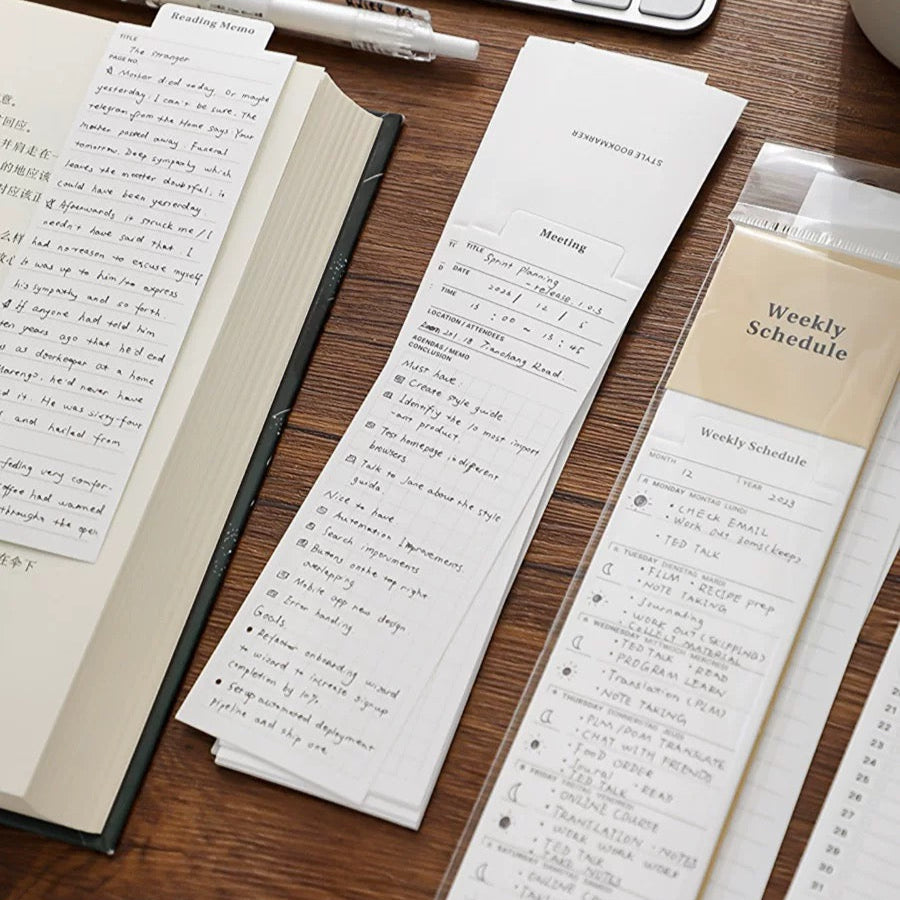 Reading Memo
TITLE
The stranger
PAGE NO.
Mother died today. Or maybe
yesterday. I can't be sure. The
telegram from the Home says Your
mother passed away. Funeral
tomorrow. Deep sympathy which
leaves the matter doubtful, it
could have been yesterday
Afterwards it struck me/I
needn't have said that. I
had no reason to excuse myself
it was up to him/to express
his sympathy and so forth.
if anyone had told him
ten years ago that he'd end
as doorkeeper at a home
Marengo, he'd never have
it. He was sixty-four
and hailed from
feeling very comfor-
coffee had warmed
through the open
意。
回应。
并肩走在一
的地应该
对应该正
么样
在伞下
STYLE BOOKMARKER
Meeting
TITLE
Sprint planning
- release 1.0.3
DATE
/ 12 / 5
TIME
13 : 00 ~ 13 : 45
LOCATION / ATTENDEES
201. 18 Tianchang Road.
AGENDAS / MEMO
CONCLUSION
Must have:
Create style guide
Identifiy the 10 most import
-ant product.
Test homepage in different
browsers
Talk to Jane about the style
guide.
Nice to have
Automation Improvements
Search improvments
Buttons on the top right
overlapping
Mobile app new design.
Error handing.
Goals
• Refactor onboarding wizard
to wizard to increase signup
completion by 10%
• Setup automated deployment
pipeline and ship one
Weekly
Schedule
Weekly Schedule
MONTH 12 YEAR 2023
MONDAY MONTAG LUNDI
• CHECK EMAIL
• Work out
• TED TALK
TUESDAY DIENSTAG MARDI
• FILM • RECIPE prep
• NOTE TAKING
• Journaling
• WORK OUT (SKIPPING)
• COLLECT MATERIAL
WEDNESDAY MITTWOCH MERCREDI
• TED TALK • READ
• PROGRAM LEARN
• Translation (PLM)
• NOTE TAKING
THURSDAY DONNERSTAG JEUDI
• PLM/DOM TRANSLATE
• CHAT WITH FRIENDS
• FOOD ORDER
• Journal
• TED TALK • READ
FRIDAY FREITAG VENDREDI
• ONLINE COURSE
• TRANSLATION • NOTES
• WORK WORK WORK
• TED TALK
• TAKE NOTES
SATURDAY SAMSTAG SAMEDI
• ONLINE
20
21
22
23
24
25
26
27
28
29
30
31